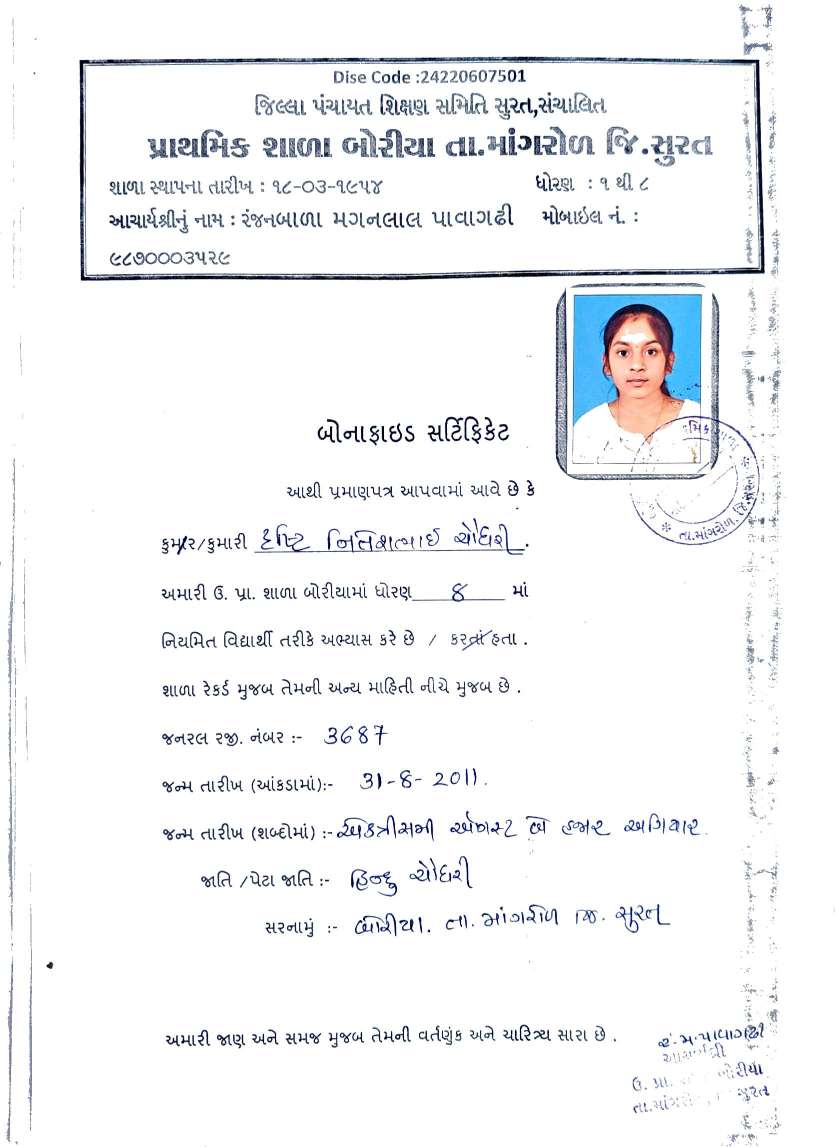 Dise Code :24220607501
જિલ્લા પંચાયત શિક્ષણ સમિતિ સુરત,સંચાલિત
પ્રાથમિક શાળા બોરીયા તા.માંગરોળ જિ.સુરત
શાળા સ્થાપના તારીખ : ૧૮-૦૩-૧૯૫૪ ધોરણ : ૧ થી ૮
આચાર્યશ્રીનું નામ : રંજનબાળા મગનલાલ પાવાગઢી મોબાઇલ નં. :
૯૮૭૦૦૦૩૫૨૯
બોનાફાઇડ સર્ટિફિકેટ
આથી પ્રમાણપત્ર આપવામાં આવે છે કે
કુમાર/કુમારી દ્રષ્ટિ નિતેશભાઈ ચૌધરી.
અમારી ઉ. પ્રા. શાળા બોરીયામાં ધોરણ 8 માં
નિયમિત વિદ્યાર્થી તરીકે અભ્યાસ કરે છે / કરતાં હતા .
શાળા રેકર્ડ મુજબ તેમની અન્ય માહિતી નીચે મુજબ છે .
જનરલ રજી. નંબર :- 3687
જન્મ તારીખ (આંકડામાં):- 31-8-2011.
જન્મ તારીખ (શબ્દોમાં) :- એકત્રીસમી ઓગસ્ટ બે હજાર અગિયાર
જાતિ /પેટા જાતિ :- હિન્દુ ચૌધરી
સરનામું :- બોરીયા. તા. માંગરોળ જિ. સુરત
અમારી જાણ અને સમજ મુજબ તેમની વર્તણુંક અને ચારિત્ર્ય સારા છે .
ર.મ.પાવાગઢી
આચાર્યશ્રી
ઉ. પ્રા. બોરીયા
તા.માંગરોળ સુરત
તા.માંગરોળ, જિ.સુરત